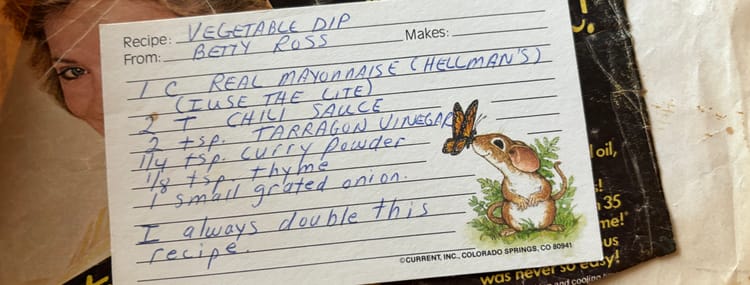 Recipe: VEGETABLE DIP
From: BETTY ROSS Makes:
1 C REAL MAYONNAISE (HELLMAN'S)
(I USE THE LITE)
2 T CHILI SAUCE
2 tsp. TARRAGON VINEGAR
1/4 tsp. CURRY POWDER
1/8 tsp. thyme
1 small grated onion.
I always double this
recipe.
©CURRENT, INC., COLORADO SPRINGS, CO 80941
oil,
35
me!
us
was never so easy!
and cooling